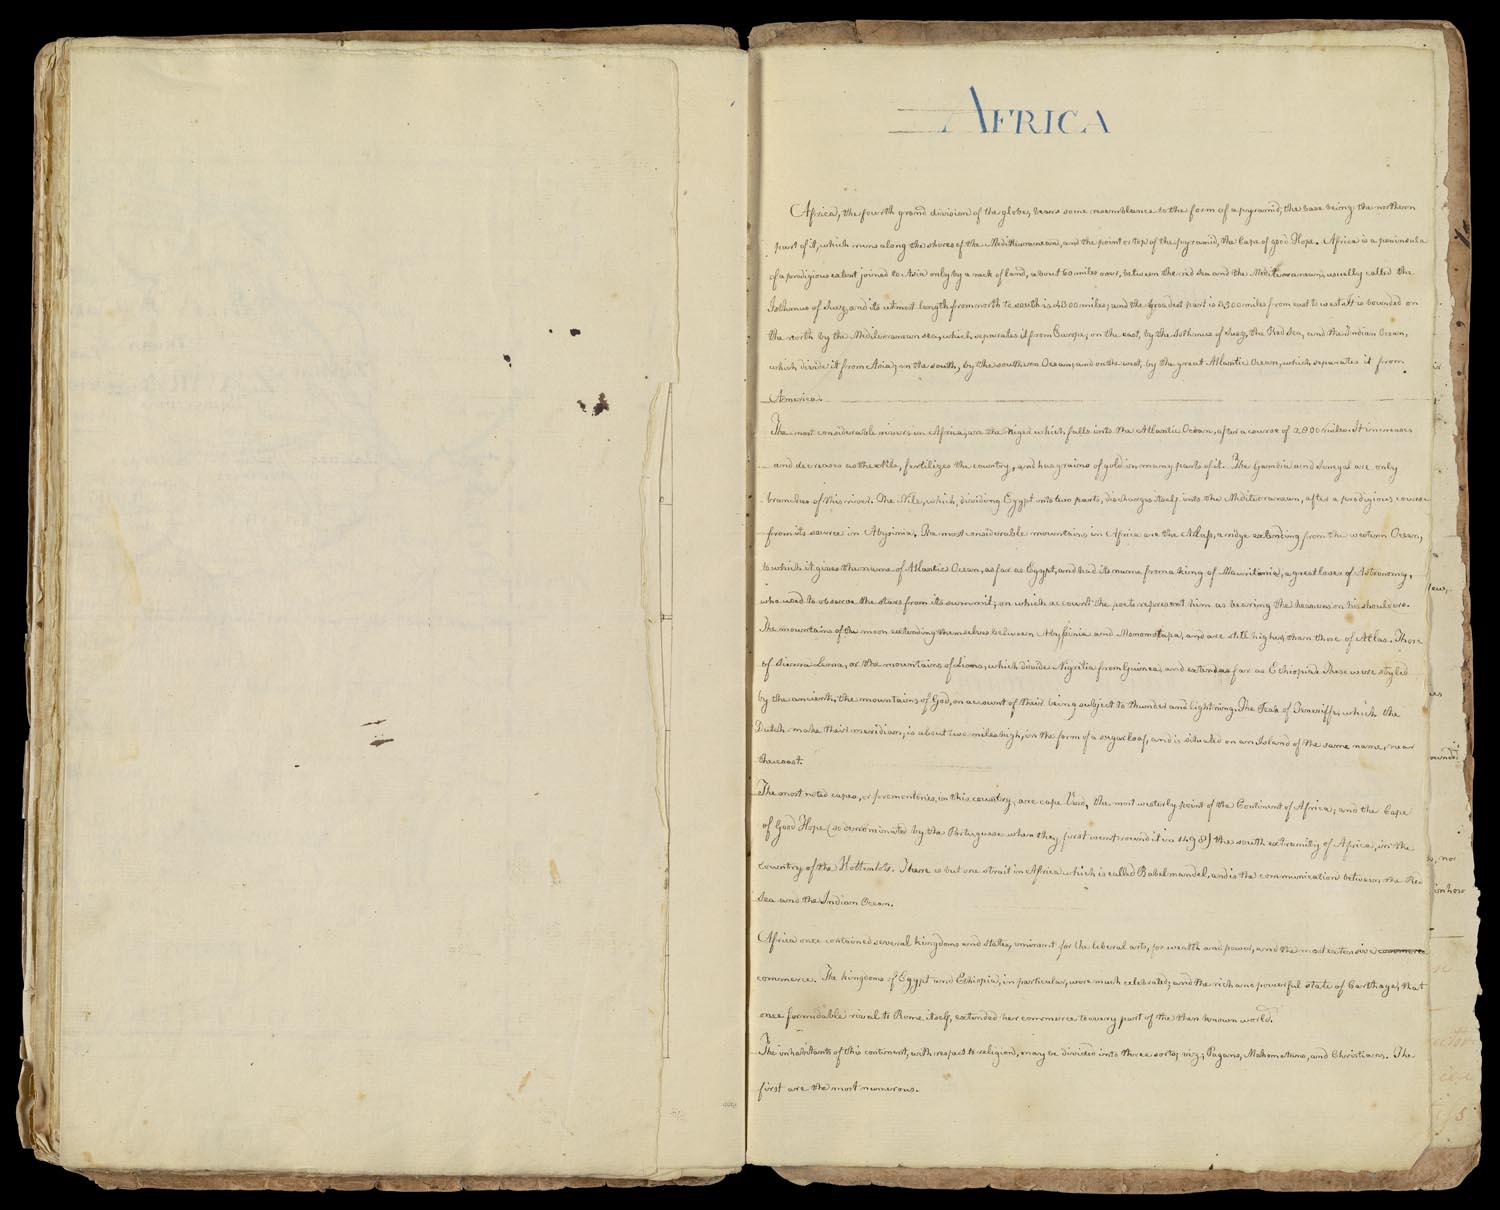 AFRICA
Africa, the fourth grand division of the globe, bears some resemblance to the form of a pyramid, the base being the northern
part of it, which runs along the shores of the Mediterranean, and the point or top of the pyramid, the Cape of good Hope. Africa is a peninsula
of a prodigious extent joined to Asia only by a neck of land, about 60 miles over, between the red sea and the Mediterranean, usually called the
Isthmus of Suez, and its utmost length from north to south is 4300 miles; and the broadest part is 3500 miles from east to west. It is bounded on
the north by the Mediterranean sea, which separates it from Europe; on the east, by the Isthmus of Suez, the Red Sea, and the Indian Ocean,
which divide it from Asia; on the south, by the southern Ocean; and on the west, by the great Atlantic Ocean, which separates it from
America.
The most considerable rivers in Africa, are the Niger which falls into the Atlantic Ocean, after a course of 2800 miles. It increases
and decreases as the Nile, fertilizes the country, and has grains of gold in many parts of it. The Gambia and Senegal are only
branches of this river. The Nile, which, dividing Egypt into two parts, discharges itself into the Mediterranean, after a prodigious course
from its source in Abysinia. The most considerable mountains in Africa are the Atlas, a ridge extending from the western Ocean,
to which it gives the name of Atlantic Ocean, as far as Egypt, and had its name from a king of Mauritania, a great lover of Astronomy,
who used to observe the stars from its summit; on which account the poets represent him as bearing the heavens on his shoulders.
The mountains of the moon extending themselves between Abyssinia and Monomotapa, and are still higher than those of Atlas. Those
of Sierra Leona, or the mountains of Lions, which divide Nigritia from Guinea, and extend as far as Ethiopia. These were styled
by the ancients, the mountains of God, on account of their being subject to thunder and lightning. The Peak of Teneriffe, which the
Dutch make their meridian, is about two miles high, in the form of a sugar loaf, and is situated on an Island of the same name, near
the coast.
The most noted capes, or promontories, in this country, are cape Verd, the most westerly point of the Continent of Africa; and the Cape
of Good Hope (so denominated by the Portuguese when they first went round it in 1498) the south extremity of Africa, in the
country of the Hottentots. There is but one strait in Africa which is called Babelmandel, and is the communication between the Red
Sea and the Indian Ocean.
Africa once contained several kingdoms and states, eminent for the liberal arts, for wealth and power, and the most extensive commerce
commerce. The kingdoms of Egypt and Ethiopia, in particular, were much celebrated; and the rich and powerful state of Carthage, that
once formidable rival to Rome itself, extended her commerce to every part of the then known world.
The inhabitants of this continent, with respect to religion, may be divided into three sorts; viz; Pagans, Mahometans, and Christians. The
first are the most numerous.